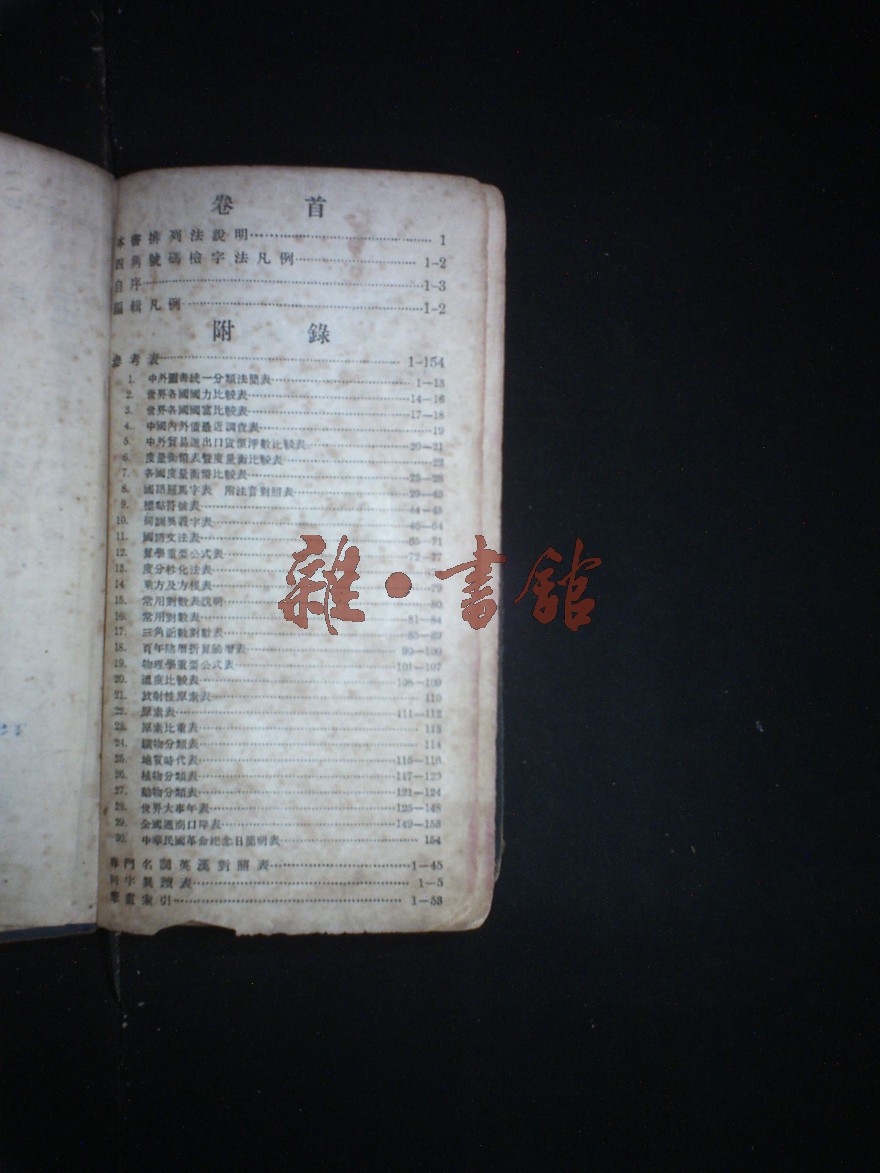 卷首
本書排列法說明 1
四角號碼檢字法凡例 1-2
自序 1-3
編輯凡例 1-2
附錄
參考表 1-154
1. 中外圖書統一分類法簡表 1—13
2. 世界各國國力比較表 14—16
3. 世界各國國富比較表 17—18
4. 中國內外債最近調查表 19
5. 中外貿易進出口貨價淨數比較表 20—21
6. 度量衡幣表暨度量衡比較表 22
7. 各國度量衡幣比較表 23—28
8. 國語羅馬字表 附注音對照表 29—43
9. 標點符號表 44—45
10. 同訓異義字表 46—64
11. 國語文法表 65—71
12. 算學重要公式表 72—77
13. 度分秒化法表
14. 乘方及方根表 79
15. 常用對數表說明 80
16. 常用對數表 81—84
17. 三角函數對數表 85—89
18. 百年陰曆折算陽曆表 90—100
19. 物理學重要公式表 101—107
20. 溫度比較表 108—109
21. 放射性原素表 110
22. 原素表 111—112
23. 原素比重表 113
24. 鑛物分類表 114
25. 地質時代表 115—116
26. 植物分類表 117—120
27. 動物分類表 121—124
28. 世界大事年表 125—148
29. 全國通商口岸表 149—153
30. 中華民國革命紀念日簡明表 154
專門名詞英漢對照表 1—45
同字異讀表 1—5
筆畫索引 1—53
雜·書館